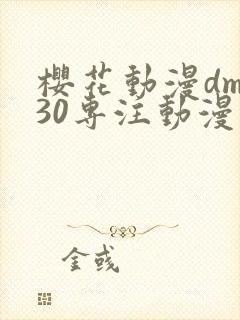 櫻花動漫dm
30專注動漫
金彧